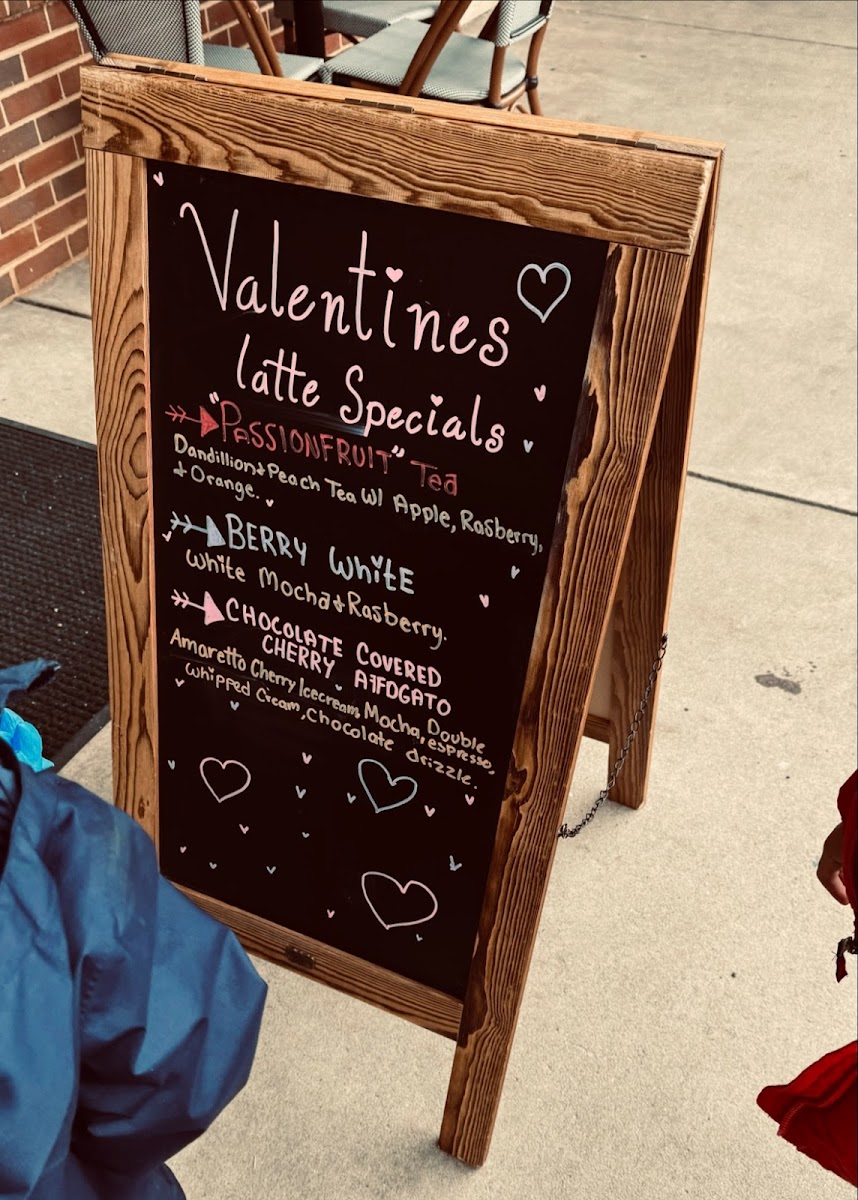 Valentines
latte Specials
"PASSIONFRUIT" Tea
Dandillion+Peach Tea W/ Apple, Rasberry,
+ Orange.
BERRY WHITE
White Mocha+Rasberry.
CHOCOLATE COVERED
CHERRY AFFOGATO
Amaretto Cherry Icecream, Mocha, Double
Whipped Cream, Chocolate espresso,
drizzle.